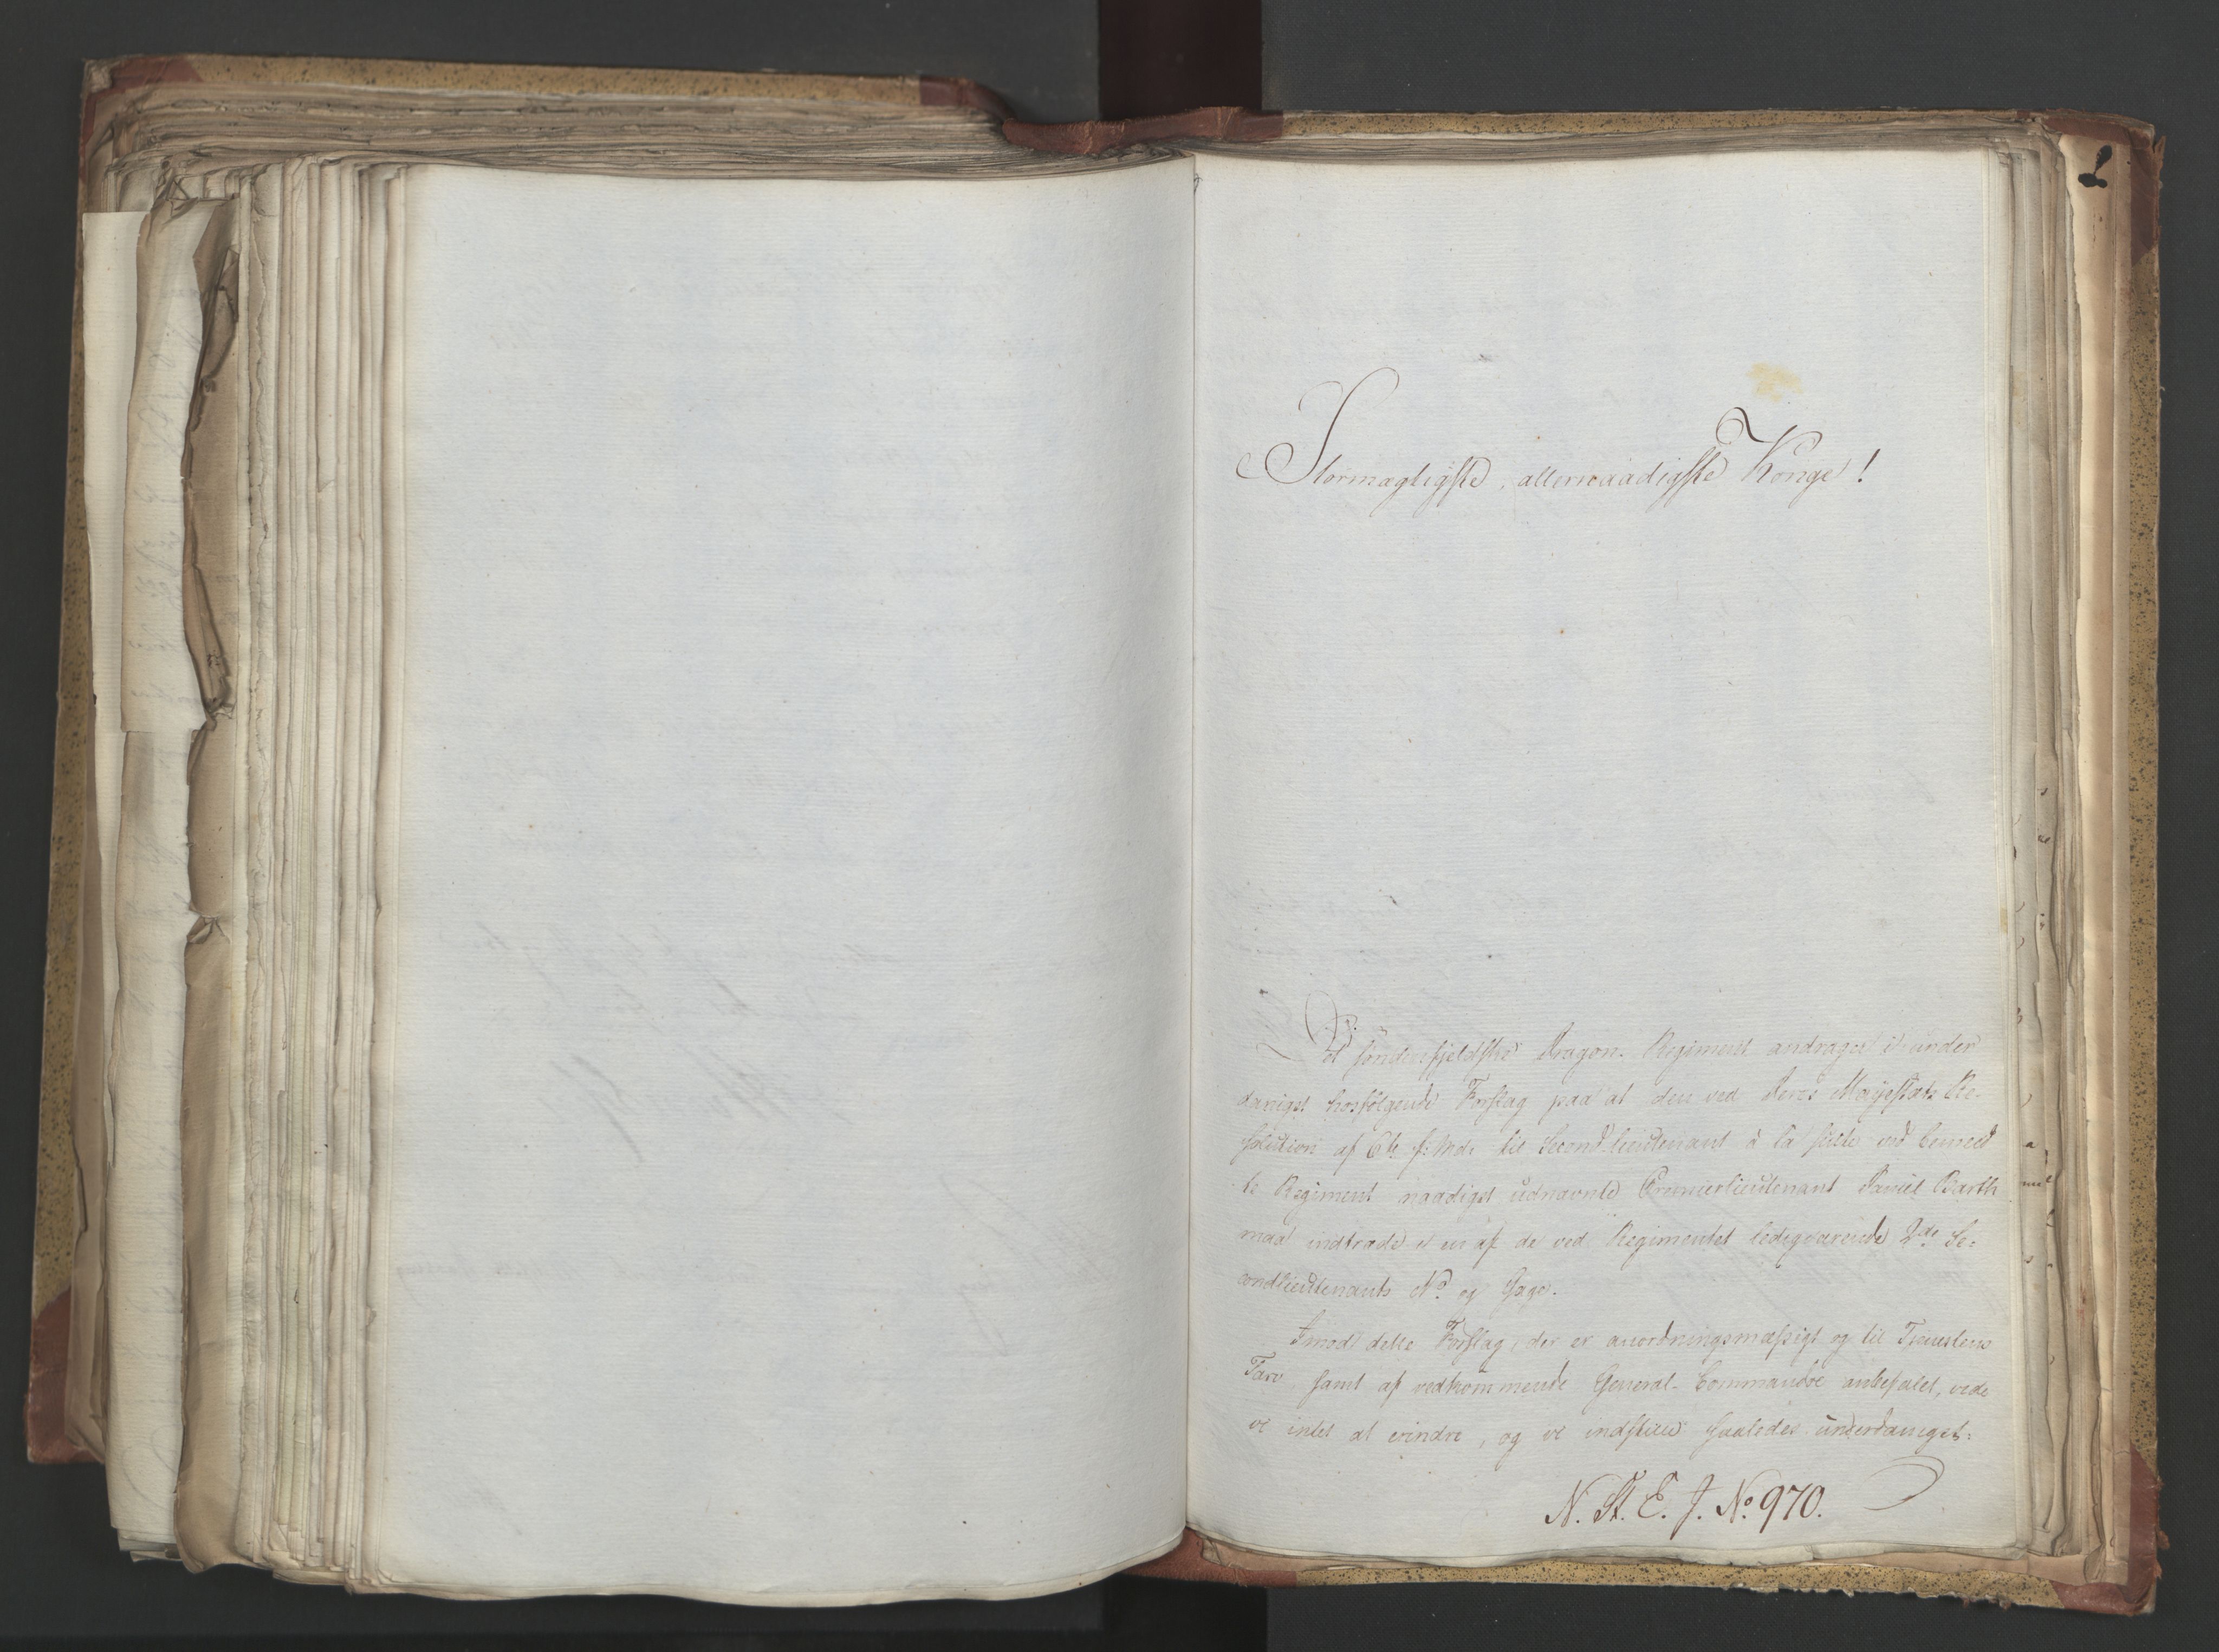 Stormægtigste, allernaadigste Konge!
Det söndenfjeldske Dragon-Regiment andrager i under
danigst hosfölgende Forslag paa at den ved Deres Majestæts Re-
solution af 6te f: Md: til Secondlieutenant à la suite ved bemeld
te Regiment naadigst udnævnte Premierlieutenant Daniel Barth
maa indtræde i en af de ved Regimentet ledigværende 2de Se-
condlieutenants No og Gage.
Imod dette Forslag, der er anordningsmæssigt og til Tjenestens
Tarv, samt af vedkommende General-Commandoe anbefalet, vide
vi intet at erindre, og vi indstille saaledes underdanigst:
N. St. E. J. No 970.